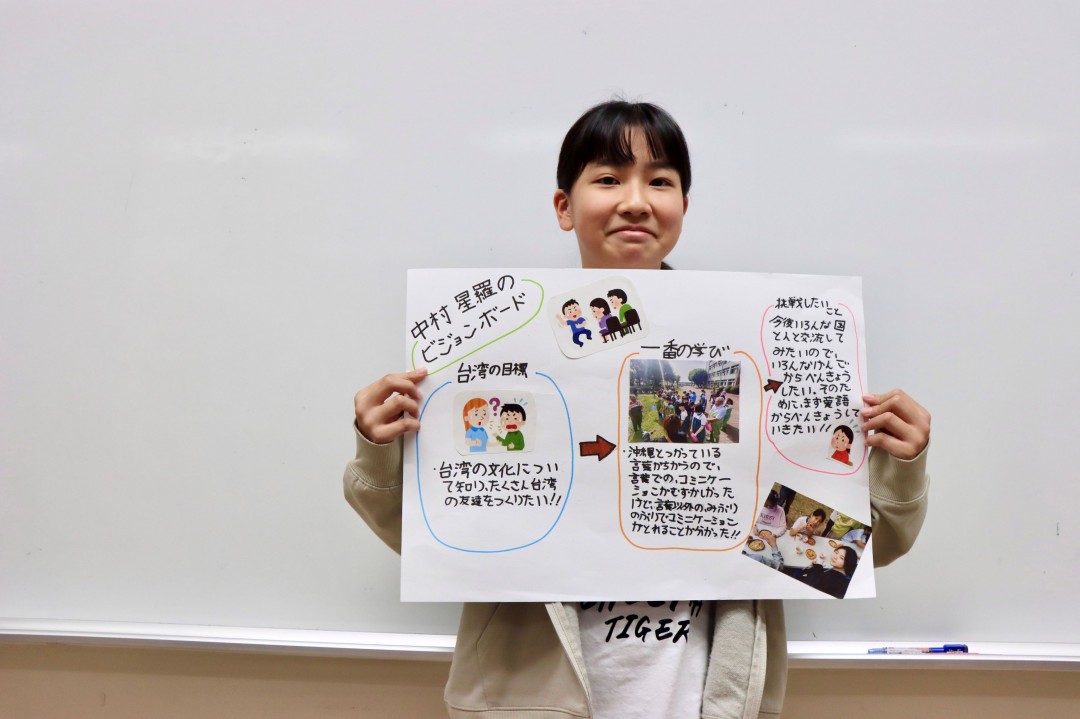 中村星羅の
ビジョンボード
台湾の目標
?
・台湾の文化につい
て知り、たくさん台湾
の友達をつくりたい!!
一番の学び
・沖縄とつかっている
言葉がちがうので、
言葉での、コミニケー
ションがむずかしかった
けど、言葉以外のみぶり
のぶりでコミニケーション
がとれることが分かった!!
挑戦したい
こと
今後いろんな国
と人と交流して
みたいので、
いろんなけんご
からべんきょう
したい。その
ために、まず英語
からべんきょうして
いきたい!!
TIGER